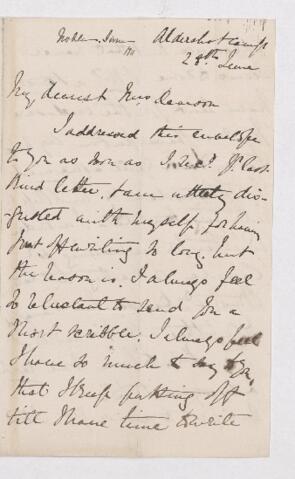 Aldershot Camp
28th June
My dearest Mrs Dawson
I addressed this envelope
to you as soon as I recd yr last
kind letter. I am utterly dis-
gusted with myself for having
put off writing so long, but
the reason is, I always feel
so reluctant to send you a
short scribble. I always feel
I have so much to say to you,
that I keep putting off
till I have time to write